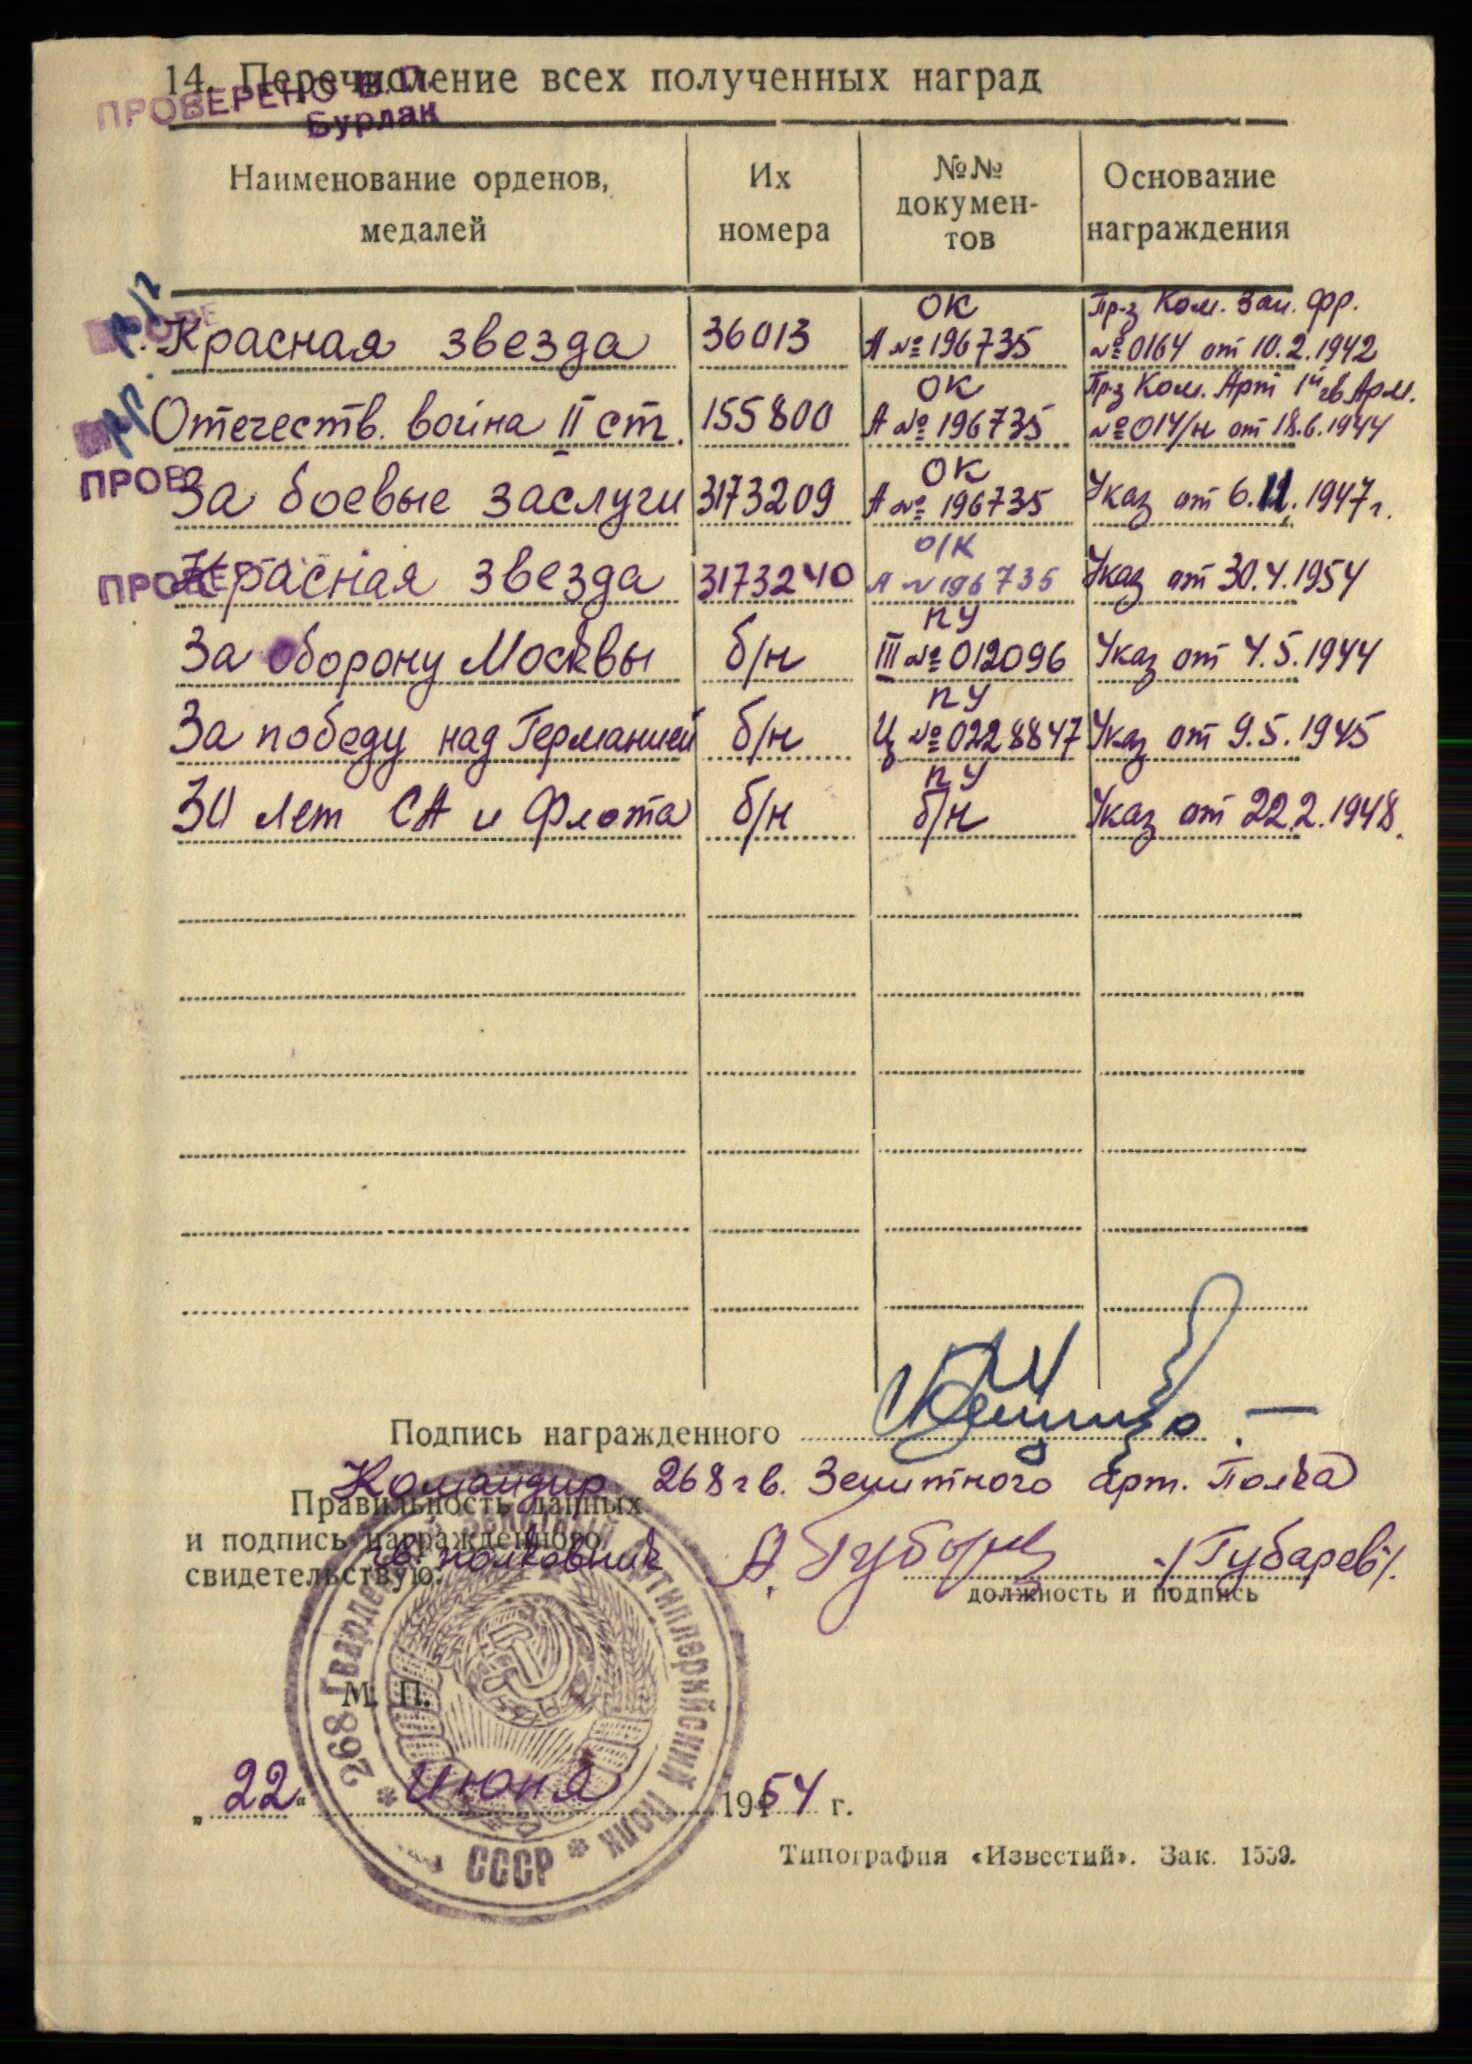 14. Перечисление всех полученных наград
ПРОВЕРЕНО
Бурлак
Наименование орденов, медалей
Их номера
№№ докумен-тов
Основание награждения
Красная звезда 36013 ОК А № 196735 Пр-з Ком. Зап. фр. № 0164 от 10.2.1942
Отечеств. война II ст. 155800 ОК А № 196735 Пр-з Ком. Арт 1й гв. Арм. № 014/н от 18.6.1944
ПРОВЕ
За боевые заслуги 3173209 ОК А № 196735 Указ от 6.11.1947 г.
ПРОВЕ
Красная звезда 3173240 О/К А № 196735 Указ от 30.4.1954
За оборону Москвы б/н ПУ III № 012096 Указ от 4.5.1944
За победу над Германией б/н ПУ Ц № 0228847 Указ от 9.5.1945
30 лет СА и Флота б/н ПУ б/н Указ от 22.2.1948.
Подпись награжденного
Командир 268 гв. Зенитного арт. Полка
Правильность данных
и подпись награжденного
свидетельствую:
гв. полковник А. Губарев /Губарев/.
должность и подпись
268 Гвардейский Зенитный Артиллерийский Полк * СССР *
М. П.
„22“ июня 1954 г.
Типография «Известий». Зак. 1559.